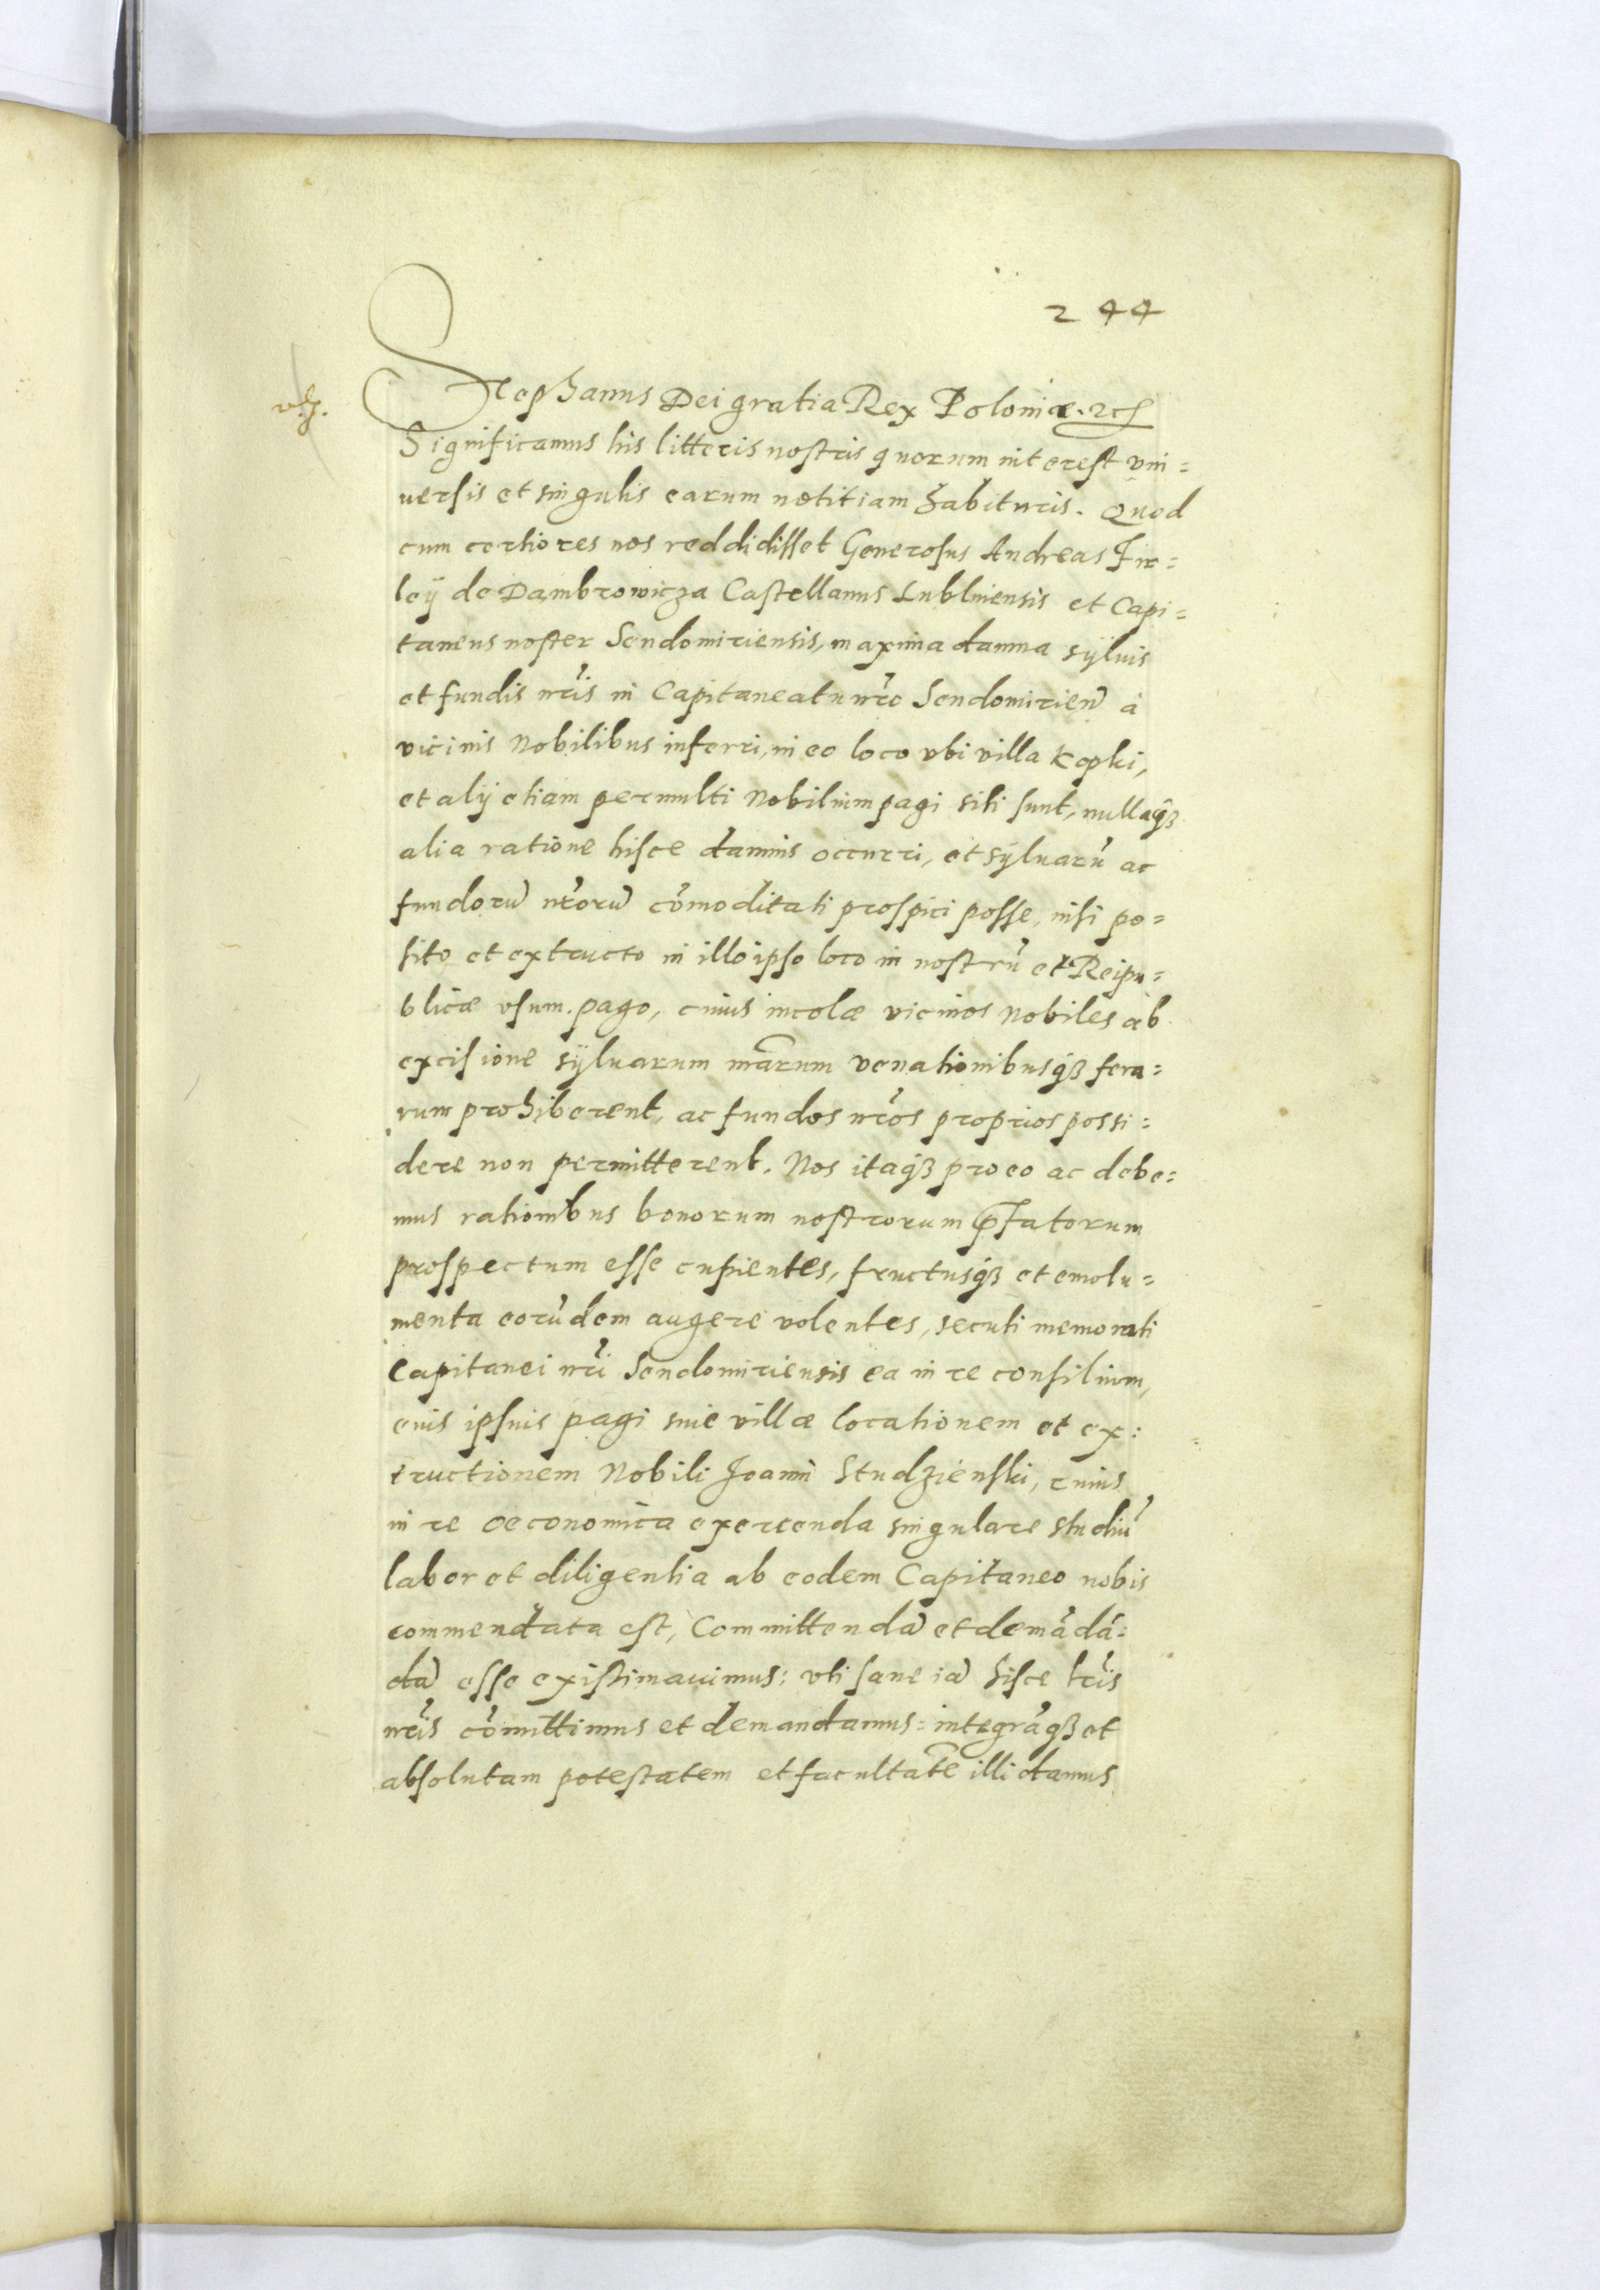 244
Stephanus Dei gratia Rex Poloniæ. etc
Significamus his litteris nostris quorum interest vni=
uersis et singulis earum notitiam habituris. Quod
cum certiores nos reddidisset Generosus Andreas Fir=
leÿ de Dambrowicza Castellanus Lublinensis et Capi=
taneus noster Sendomiriensis, maxima damna sÿluis
et fundis nr̃is in Capitaneatu nr̃o Sendomirien̄ à
vicinis Nobilibus inferri, in eo loco vbi villa Kopki,
et alij etiam permulti Nobilium pagi siti sunt, nullaq̃з
alia ratione hisce damnis occurri, et sÿluarũ ac
fundorũ nr̃orũ cõmoditati prospici posse, nisi po=
sito et extructo in illo ipso loco in nostrũ et Reipu=
blicæ vsum pago, cuius incolæ vicinos Nobiles ab
excisione sÿluarum nr̃arum venationibusq̃з fera=
rum prohiberent, ac fundos nr̃os proprios possi=
dere non permitterent. Nos itaq̃з pro eo ac debe=
mus rationibus bonorum nostrorum p̃fatorum
prospectum esse cupientes, fructusq̃з et emolu=
menta eorũdem augere volentes, secuti memorati
Capitanei nr̃i Sendomiriensis ea in re consilium,
euis ipsuis pagi siue villæ locationem et ex:
tructionem Nobili Joanni Studzienski, cuius
in re oeconomica exercenda singulare studiũ
labor et diligentia ab eodem Capitaneo nobis
commendata est, Committendã et demãdã=
dã esse existimauimus: vti sane iã hisce lr̃is
nr̃is cõmittimus et demandamus: integrãq̃з et
absolutam potestatem et facultatẽ illi damus